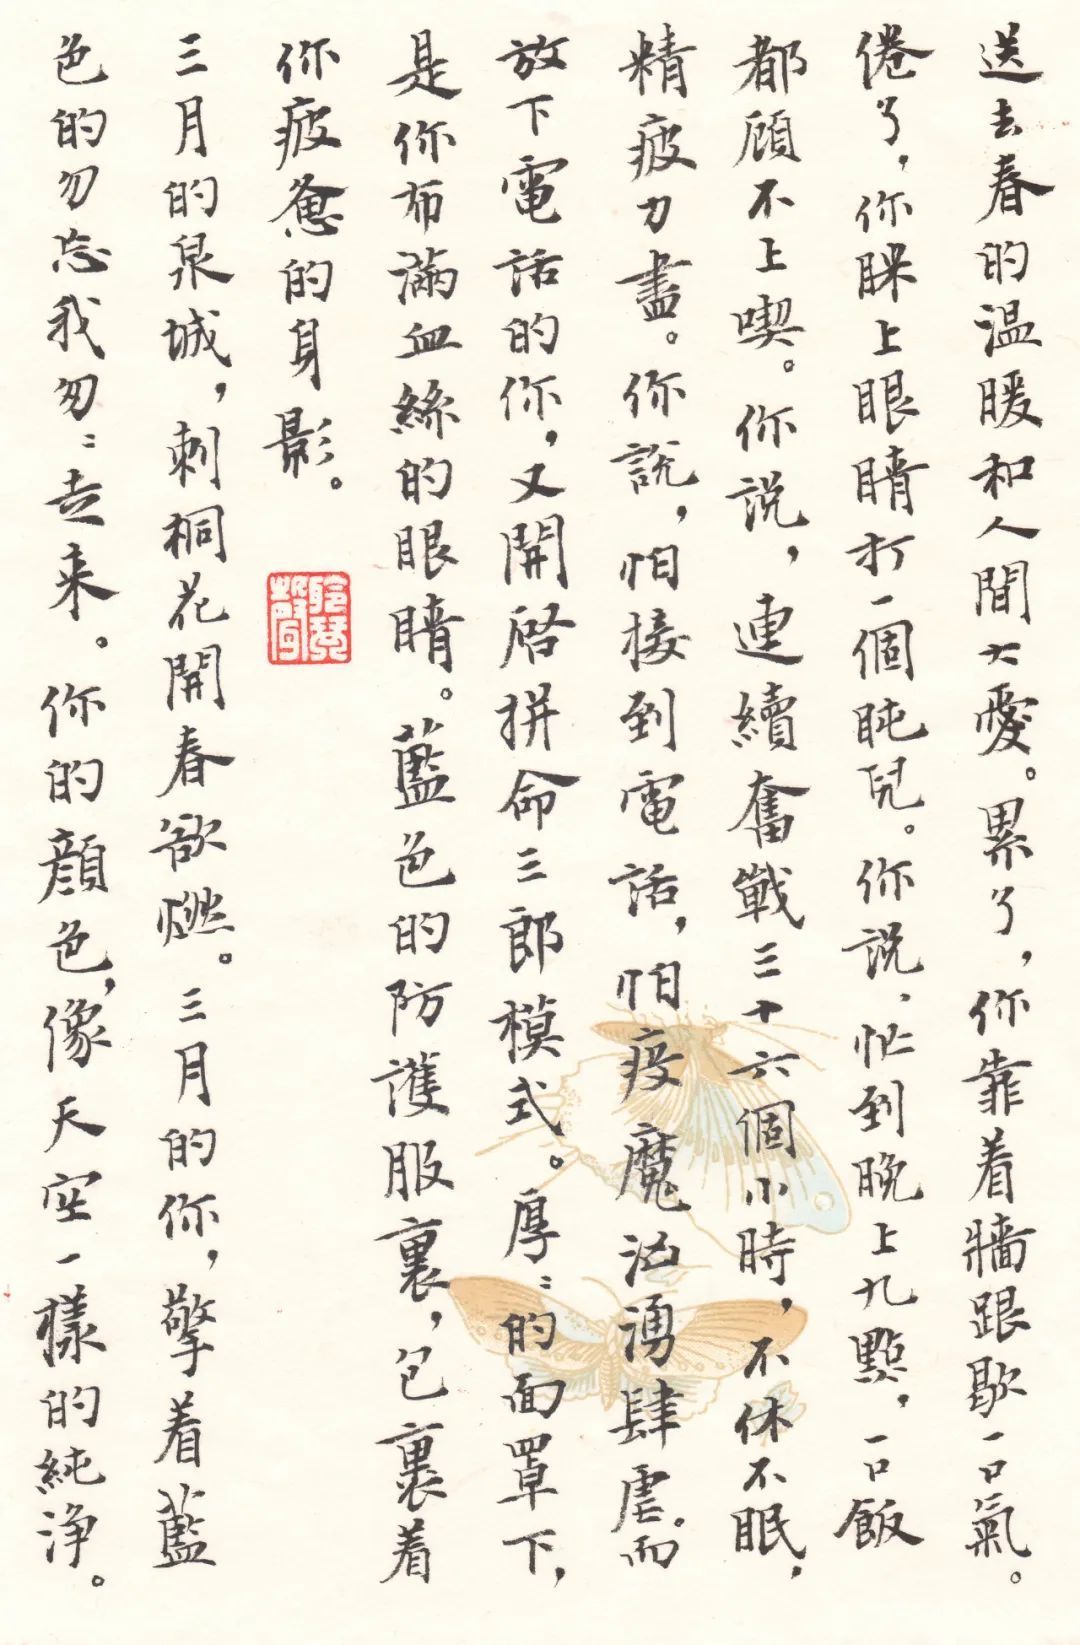 送去春的温暖和人間大愛。累了，你靠着牆跟歇一口氣。
倦了，你眯上眼睛打一個盹兒。你説，忙到晚上九點，一口飯
都顧不上喫。你説，連續奮戰三十六個小時，不休不眠，
精疲力盡。你説，怕接到電話，怕疫魔汹湧肆虐。而
放下電話的你，又開啓拼命三郎模式。厚〻的面罩下，
是你布滿血絲的眼睛。藍色的防護服裏，包裹着
你疲惫的身影。
三月的泉城，刺桐花開春欲燃。三月的你，擎着藍
色的勿忘我匆〻走来。你的顔色，像天空一樣的純净。